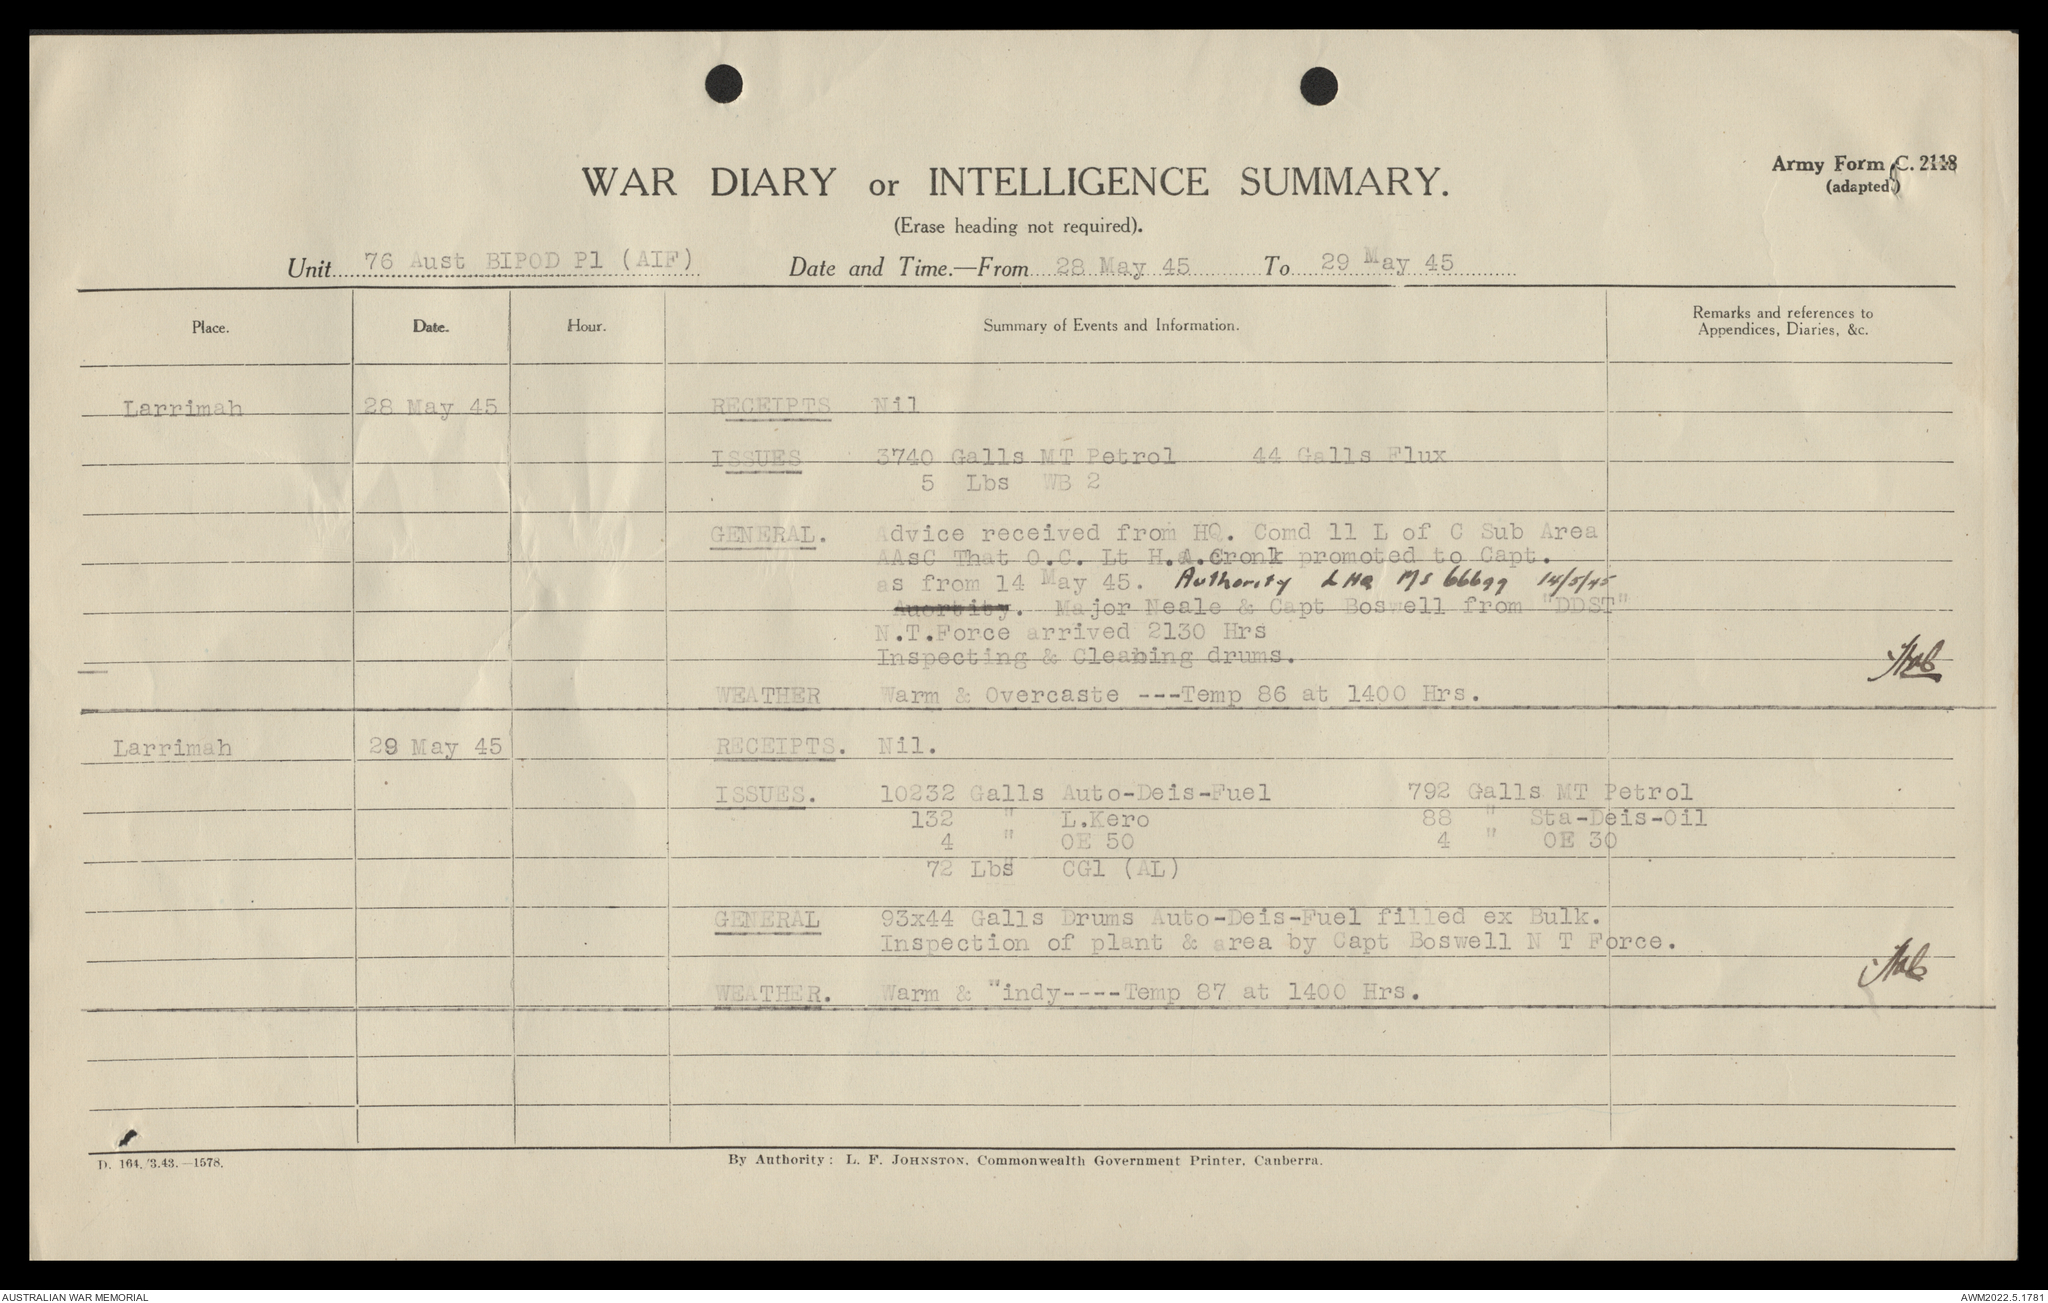 Army Form C. 2118
(adapted)
WAR DIARY or INTELLIGENCE SUMMARY.
(Erase heading not required).
Unit 76 Aust BIPOD Pl (AIF) Date and Time.—From 28 May 45 To 29 May 45
Place. Date. Hour. Summary of Events and Information. Remarks and references to Appendices, Diaries, &c.
Larrimah 28 May 45 RECEIPTS Nil
ISSUES 3740 Galls MT Petrol 44 Galls Flux
5 Lbs WB 2
GENERAL. Advice received from HQ. Comd 11 L of C Sub Area
AAsC That O.C. Lt H.A.Cronk promoted to Capt.
as from 14 May 45. Authority LHQ MS 66699 14/5/45
Auortity. Major Neale & Capt Boswell from "DDST"
N.T.Force arrived 2130 Hrs
Inspecting & Cleaning drums.
WEATHER Warm & Overcaste ---Temp 86 at 1400 Hrs.
Larrimah 29 May 45 RECEIPTS. Nil.
ISSUES. 10232 Galls Auto-Deis-Fuel 792 Galls MT Petrol
132 " L.Kero 88 " Sta-Deis-Oil
4 " OE 50 4 " OE 30
72 Lbs" CG1 (AL)
GENERAL 93x44 Galls Drums Auto-Deis-Fuel filled ex Bulk.
Inspection of plant & area by Capt Boswell N T Force.
WEATHER. Warm & "indy----Temp 87 at 1400 Hrs.
D. 164. 3.43.—1578.
By Authority: L. F. JOHNSTON, Commonwealth Government Printer, Canberra.
AUSTRALIAN WAR MEMORIAL
AWM2022.5.1781